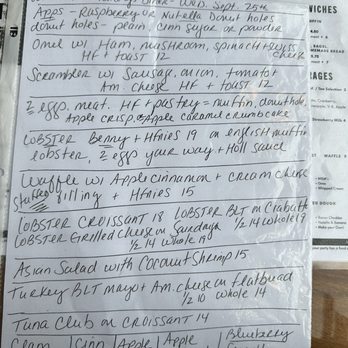 Wed. Sept. 25th
Apps - Raspberry or Nutella Donut holes
donut holes - plain, cinn sugar or powder
Omel w/ Ham, mushroom, spinach + swiss cheese
HF + toast 12
Scrambler w/ Sausage, onion, tomato +
Am. cheese HF + toast 12
2 eggs, meat, HF + pastry = muffin, donut hole,
Apple crisp, Apple caramel crumbcake
LOBSTER Benny + Hfries 19 on english muffin
lobster, 2 eggs your way + Holl sauce
Waffle w/ Apple Cinnamon + cream cheese
stuffed filling + Hfries 15
LOBSTER CROISSANT 18 LOBSTER BLT on Ciabatta
LOBSTER Grilled Cheese on Sundays 1/2 14 whole 19
1/2 14 Whole 19
Asian Salad with Coconut Shrimp 15
Turkey BLT mayo + Am. cheese on flatbread
1/2 10 whole 14
Tuna Club on CROISSANT 14
Cinn Apple Apple Blueberry
WICHES
RAGES